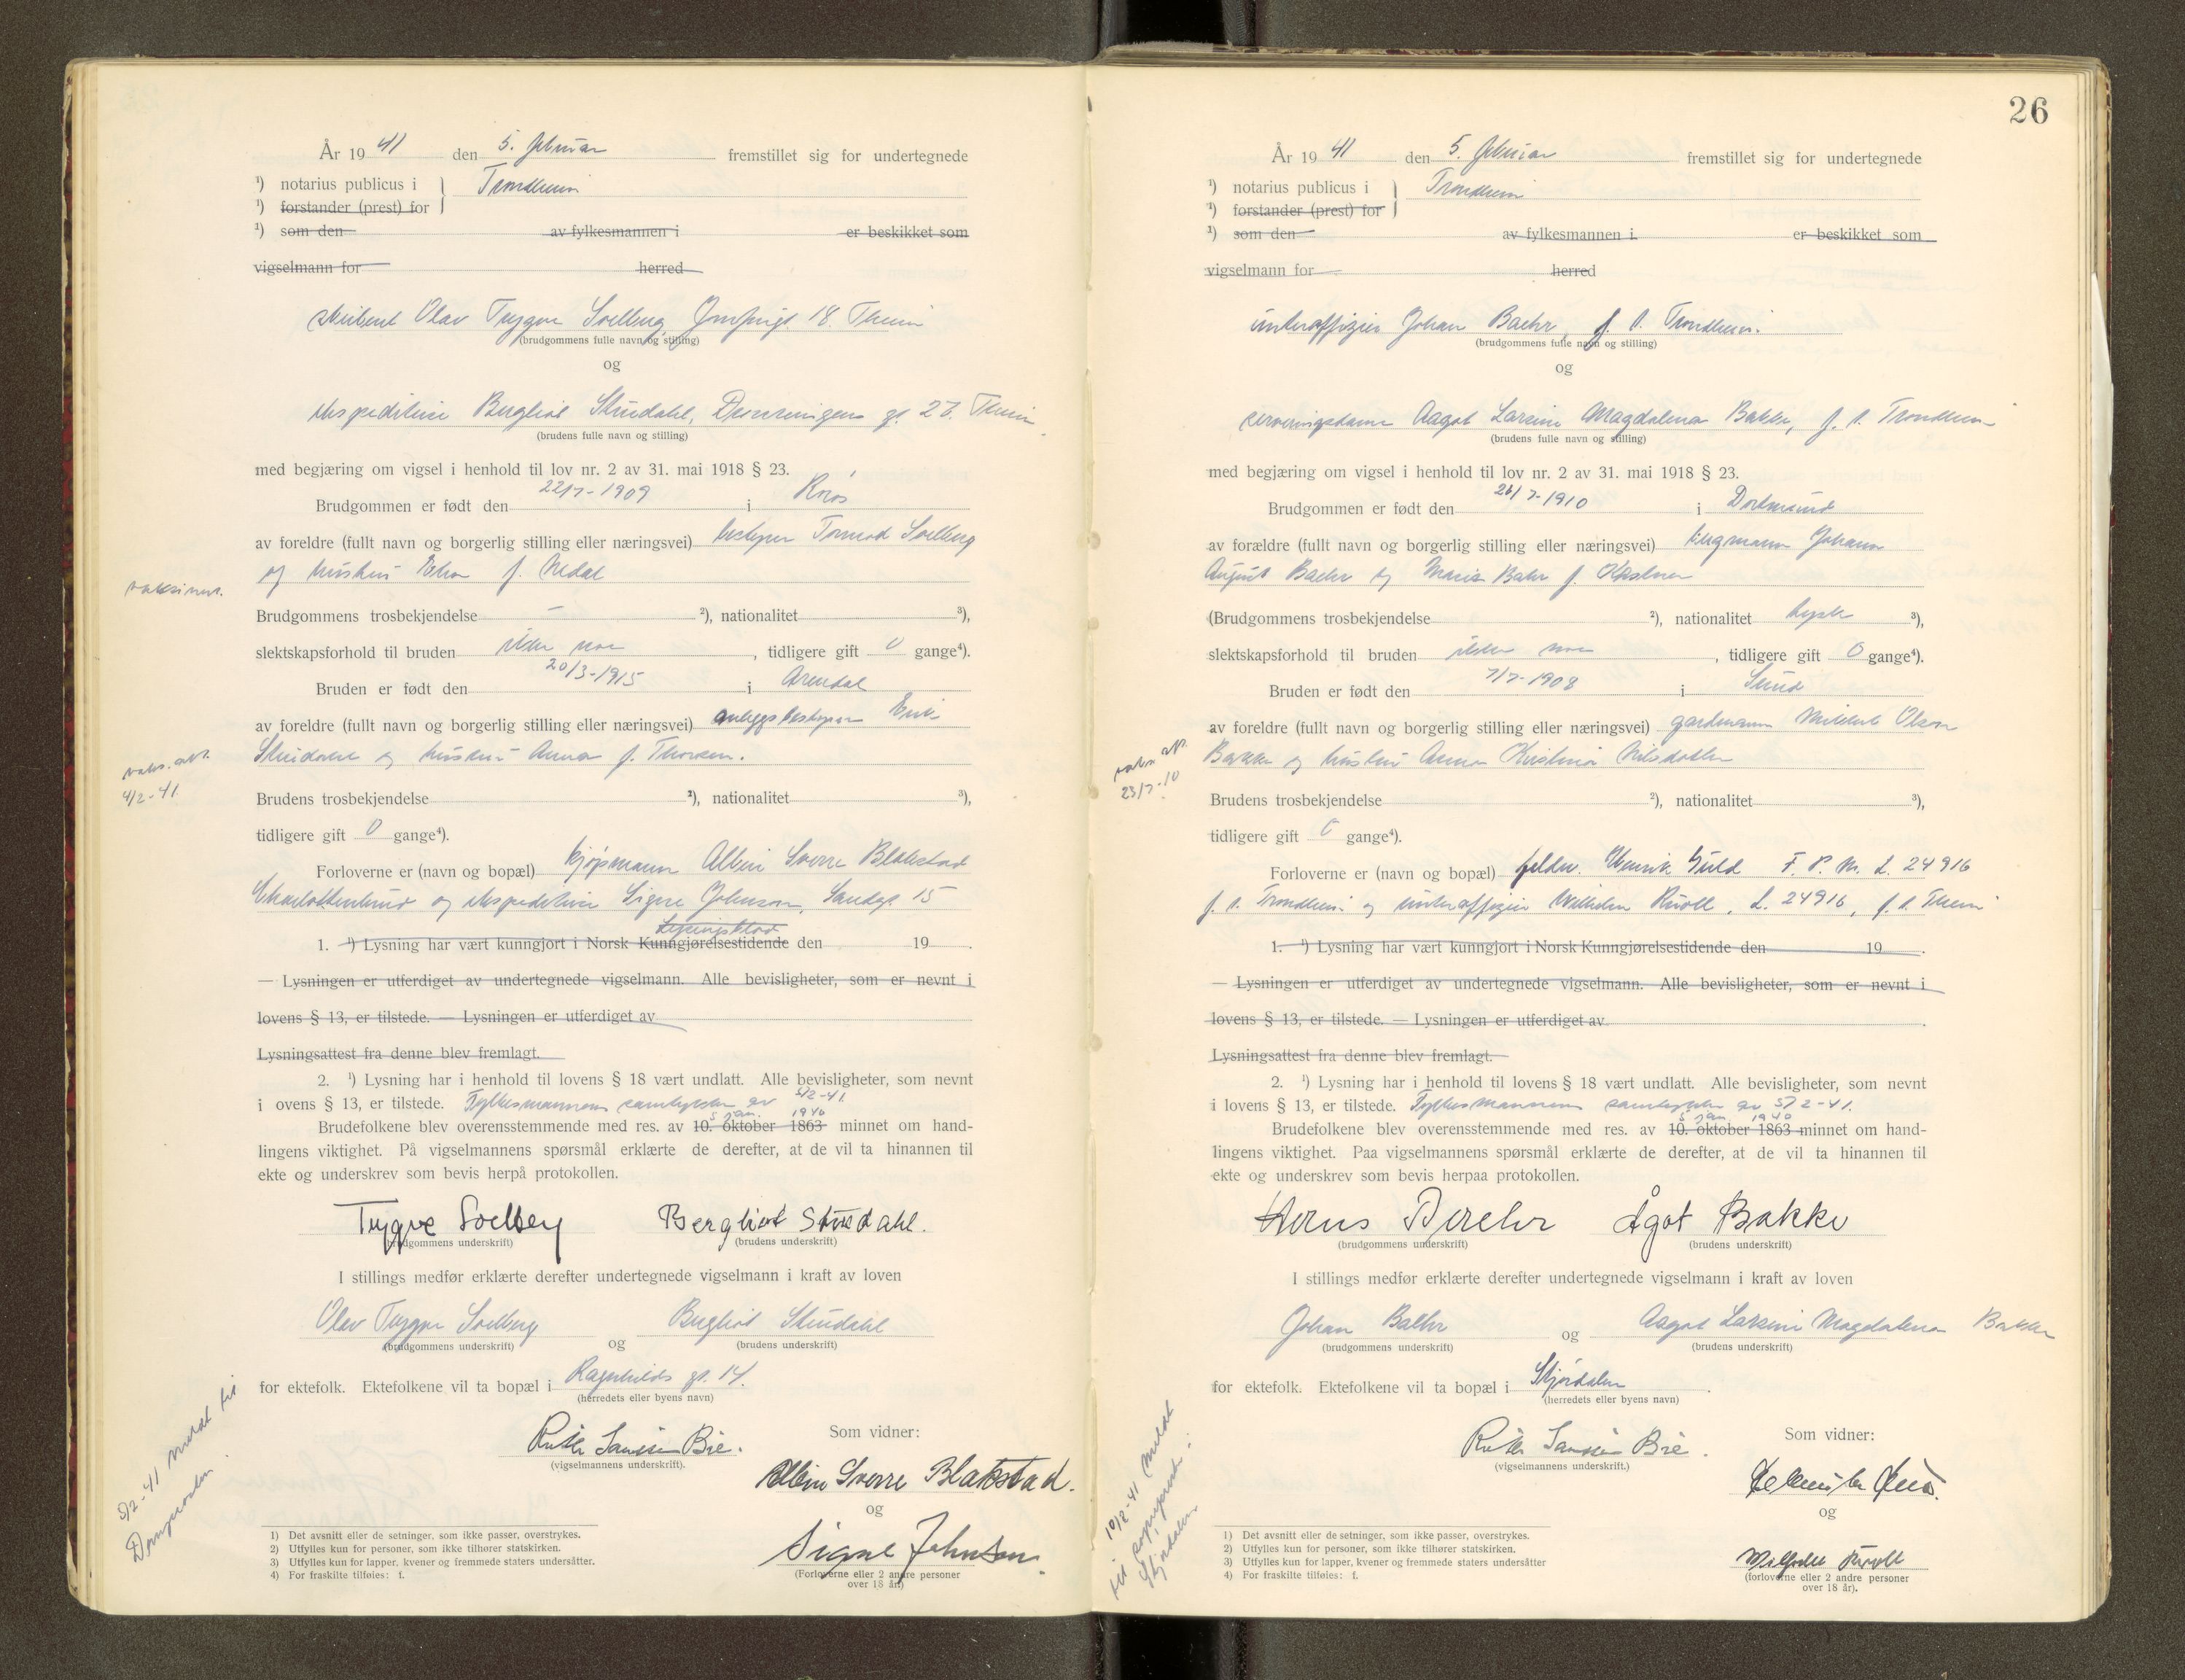 År 19 41 den 5. februar fremstillet sig for undertegnede
¹) notarius publicus i Trondheim
¹) forstander (prest) for
¹) som den av fylkesmannen i er beskikket som
vigselmann for herred
Olav Trygve Solberg, 18. Theim
(brudgommens fulle navn og stilling)
og
ekspeditrise Bergliot Studahl, Dronningens gt. 27. Theim.
(brudens fulle navn og stilling)
med begjæring om vigsel i henhold til lov nr. 2 av 31. mai 1918 § 23.
Brudgommen er født den 22/7-1909 i Røros
av foreldre (fullt navn og borgerlig stilling eller næringsvei) bestyrer Tormod Solberg
og hustru f. Nedal
Brudgommens trosbekjendelse – ²), nationalitet ³),
slektskapsforhold til bruden uten noe, tidligere gift 0 gange⁴).
Bruden er født den 20/3-1915 i Arendal
av foreldre (fullt navn og borgerlig stilling eller næringsvei) anleggsbestyrer
Studahl og hustru Anna f. Thorsen.
vaks. att.
4/2-41.
Brudens trosbekjendelse ²), nationalitet ³),
tidligere gift 0 gange⁴).
Forloverne er (navn og bopæl) kjøpmann Albin Sverre Blakstad
Charlottenlund og ekspeditrise Signe Johnson, Sandgt 15
Lysingsblad
1. ¹) Lysning har vært kunngjort i Norsk Kunngjørelsestidende den 19 .
— Lysningen er utferdiget av undertegnede vigselmann. Alle bevisligheter, som er nevnt i
lovens § 13, er tilstede. — Lysningen er utferdiget av
Lysningsattest fra denne blev fremlagt.
2. ¹) Lysning har i henhold til lovens § 18 vært undlatt. Alle bevisligheter, som nevnt
i ovens § 13, er tilstede. Fylkesmannens samtykke av 5/2-41.
5 jan. 1940
Brudefolkene blev overensstemmende med res. av 10. oktober 1863 minnet om hand-
lingens viktighet. På vigselmannens spørsmål erklærte de derefter, at de vil ta hinannen til
ekte og underskrev som bevis herpå protokollen.
Trygve Solberg Bergliot Studahl.
(brudgommens underskrift) (brudens underskrift)
I stillings medfør erklærte derefter undertegnede vigselmann i kraft av loven
Olav Trygve Solberg og Bergliot Studahl
(brudgommens underskrift) (brudens underskrift)
for ektefolk. Ektefolkene vil ta bopæl i Ragnhilds gt. 14.
(herredets eller byens navn)
5/2-41 meldt til
Domprosten.
Som vidner:
Ruth Sanssen Bie.
(vigselmannens underskrift).
Albin Sverre Blakstad.
og
Signe Johnson.
(Forloverne eller 2 andre personer
over 18 år)
1) Det avsnitt eller de setninger, som ikke passer, overstrykes.
2) Utfylles kun for personer, som ikke tilhører statskirken.
3) Utfylles kun for lapper, kvener og fremmede staters undersåtter.
4) For fraskilte tilføies: f.
26
År 19 41 den 5. februar fremstillet sig for undertegnede
¹) notarius publicus i Trondheim
¹) forstander (prest) for
¹) som den av fylkesmannen i er beskikket som
vigselmann for herred
unteroffizier Johan Baehr, f. t. Trondheim.
(brudgommens fulle navn og stilling)
og
serveringsdame Aagot Larsine Magdalena Bakke, f. t. Trondheim
(brudens fulle navn og stilling)
med begjæring om vigsel i henhold til lov nr. 2 av 31. mai 1918 § 23.
Brudgommen er født den 26/7-1910 i Dortmund
av forældre (fullt navn og borgerlig stilling eller næringsvei) Johann
August Baehr og Maria Bahr f.
(Brudgommens trosbekjendelse ²), nationalitet tysk ³),
slektskapsforhold til bruden uten noe, tidligere gift 0 gange⁴).
Bruden er født den 7/7-1908 i Sund
av foreldre (fullt navn og borgerlig stilling eller næringsvei) gardmann Olsen
Bakke og hustru Anna Kristina Nilsdatter
vaks. att.
23/7-10
Brudens trosbekjendelse ²), nationalitet ³),
tidligere gift 0 gange⁴).
Forloverne er (navn og bopæl) feldw. Henrik F. P. M. L. 24916
f. t. Trondheim og unteroffizier Wilhelm, L. 24916, f. t. Theim
1. ¹) Lysning har vært kunngjort i Norsk Kunngjørelsestidende den 19 .
— Lysningen er utferdiget av undertegnede vigselmann. Alle bevisligheter, som er nevnt i
lovens § 13, er tilstede. — Lysningen er utferdiget av .
Lysningsattest fra denne blev fremlagt.
2. ¹) Lysning har i henhold til lovens § 18 vært undlatt. Alle bevisligheter, som nevnt
i lovens § 13, er tilstede. Fylkesmannens samtykke av 5/2-41.
5 jan 1940
Brudefolkene blev overensstemmende med res. av 10. oktober 1863 minnet om hand-
lingens viktighet. Paa vigselmannens spørsmål erklærte de derefter, at de vil ta hinannen til
ekte og underskrev som bevis herpaa protokollen.
Ågot Bakke
(brudgommens underskrift) (brudens underskrift)
I stillings medfør erklærte derefter undertegnede vigselmann i kraft av loven
Johan Baehr og Aagot Larsine Magdalena Bakke
(brudgommens underskrift) (brudens underskrift)
for ektefolk. Ektefolkene vil ta bopæl i Stjørdalen .
(herredets eller byens navn)
10/2-41 meldt
til sogneprest.
Stjørdalen
Som vidner:
Ruth Sanssen Bie .
(vigselmannens underskrift.)
og
(forloverne eller 2 andre personer
over 18 år).
1) Det avsnitt eller de setninger, som ikke passer, overstrykes.
2) Utfylles kun for personer, som ikke tilhører statskirken.
3) Utfylles kun for lapper, kvener og fremmede staters undersåtter
4) For fraskilte tilføies: f.